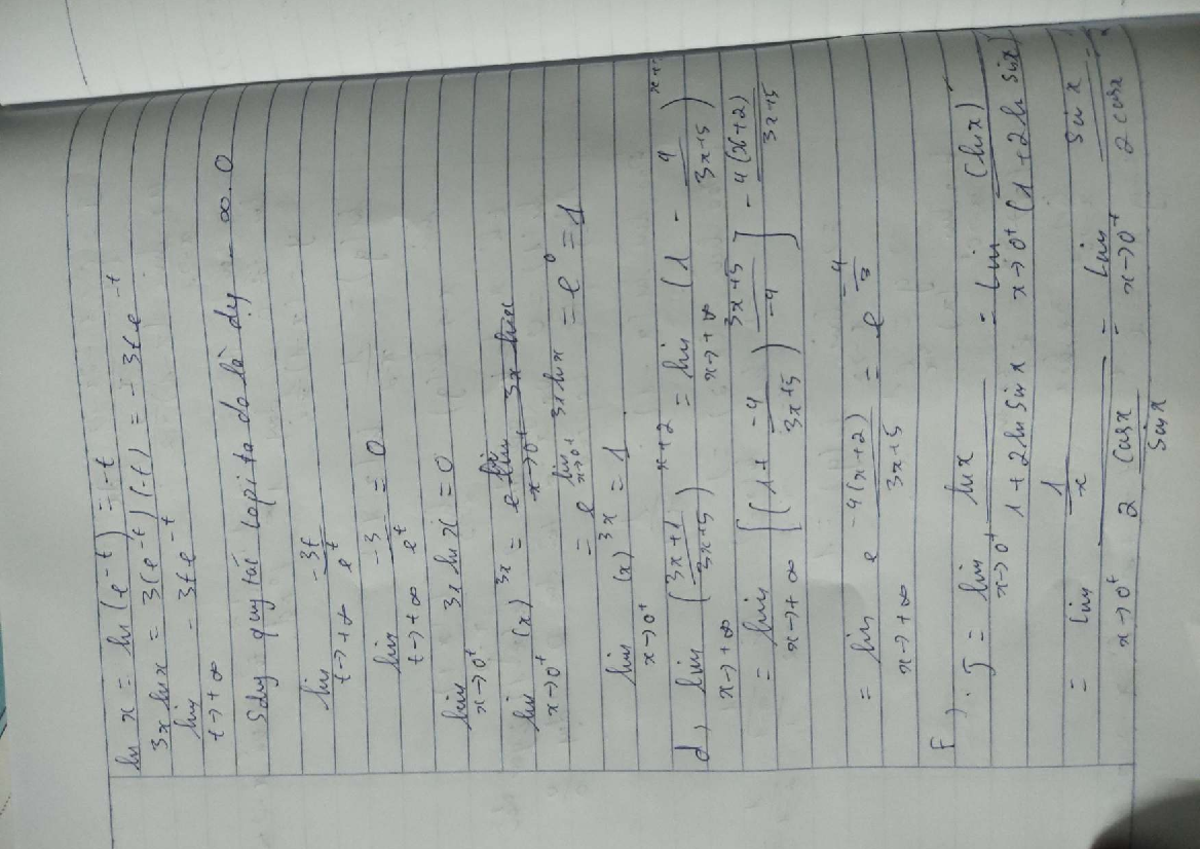 ln x = ln (e^-t) = -t
3x ln x = 3(e^-t) (-t) = -3te^-t
lim t→+∞ -3te^-t
Sdụ quy tắc lopita do là dụ - ∞.0
lim t→+∞ -3t/e^t
lim t→+∞ -3/e^t = 0
lim x→0⁺ 3x ln x = 0
lim x→0⁺ (x)^3x = e^lim x→0⁺ 3x ln x
= e^lim x→0⁺ 3x ln x = e^0 = 1
lim x→0⁺ (x)^3x = 1
d, lim x→+∞ ((3x+1)/(3x+5))^x+2 = lim x→+∞ (1 - 4/(3x+5))^x+
= lim x→+∞ [(1 + -4/(3x+5))^(3x+5)/-4]^-4(x+2)/(3x+5)
= lim x→+∞ e^-4(x+2)/(3x+5) = e^-4/3
F). J = lim x→0⁺ ln x/(1+2ln sin x) = lim x→0⁺ (ln x)/(1+2ln sin x)
= lim x→0⁺ (1/x)/(2 cos x/sin x) = lim x→0⁺ sin x/2cos x